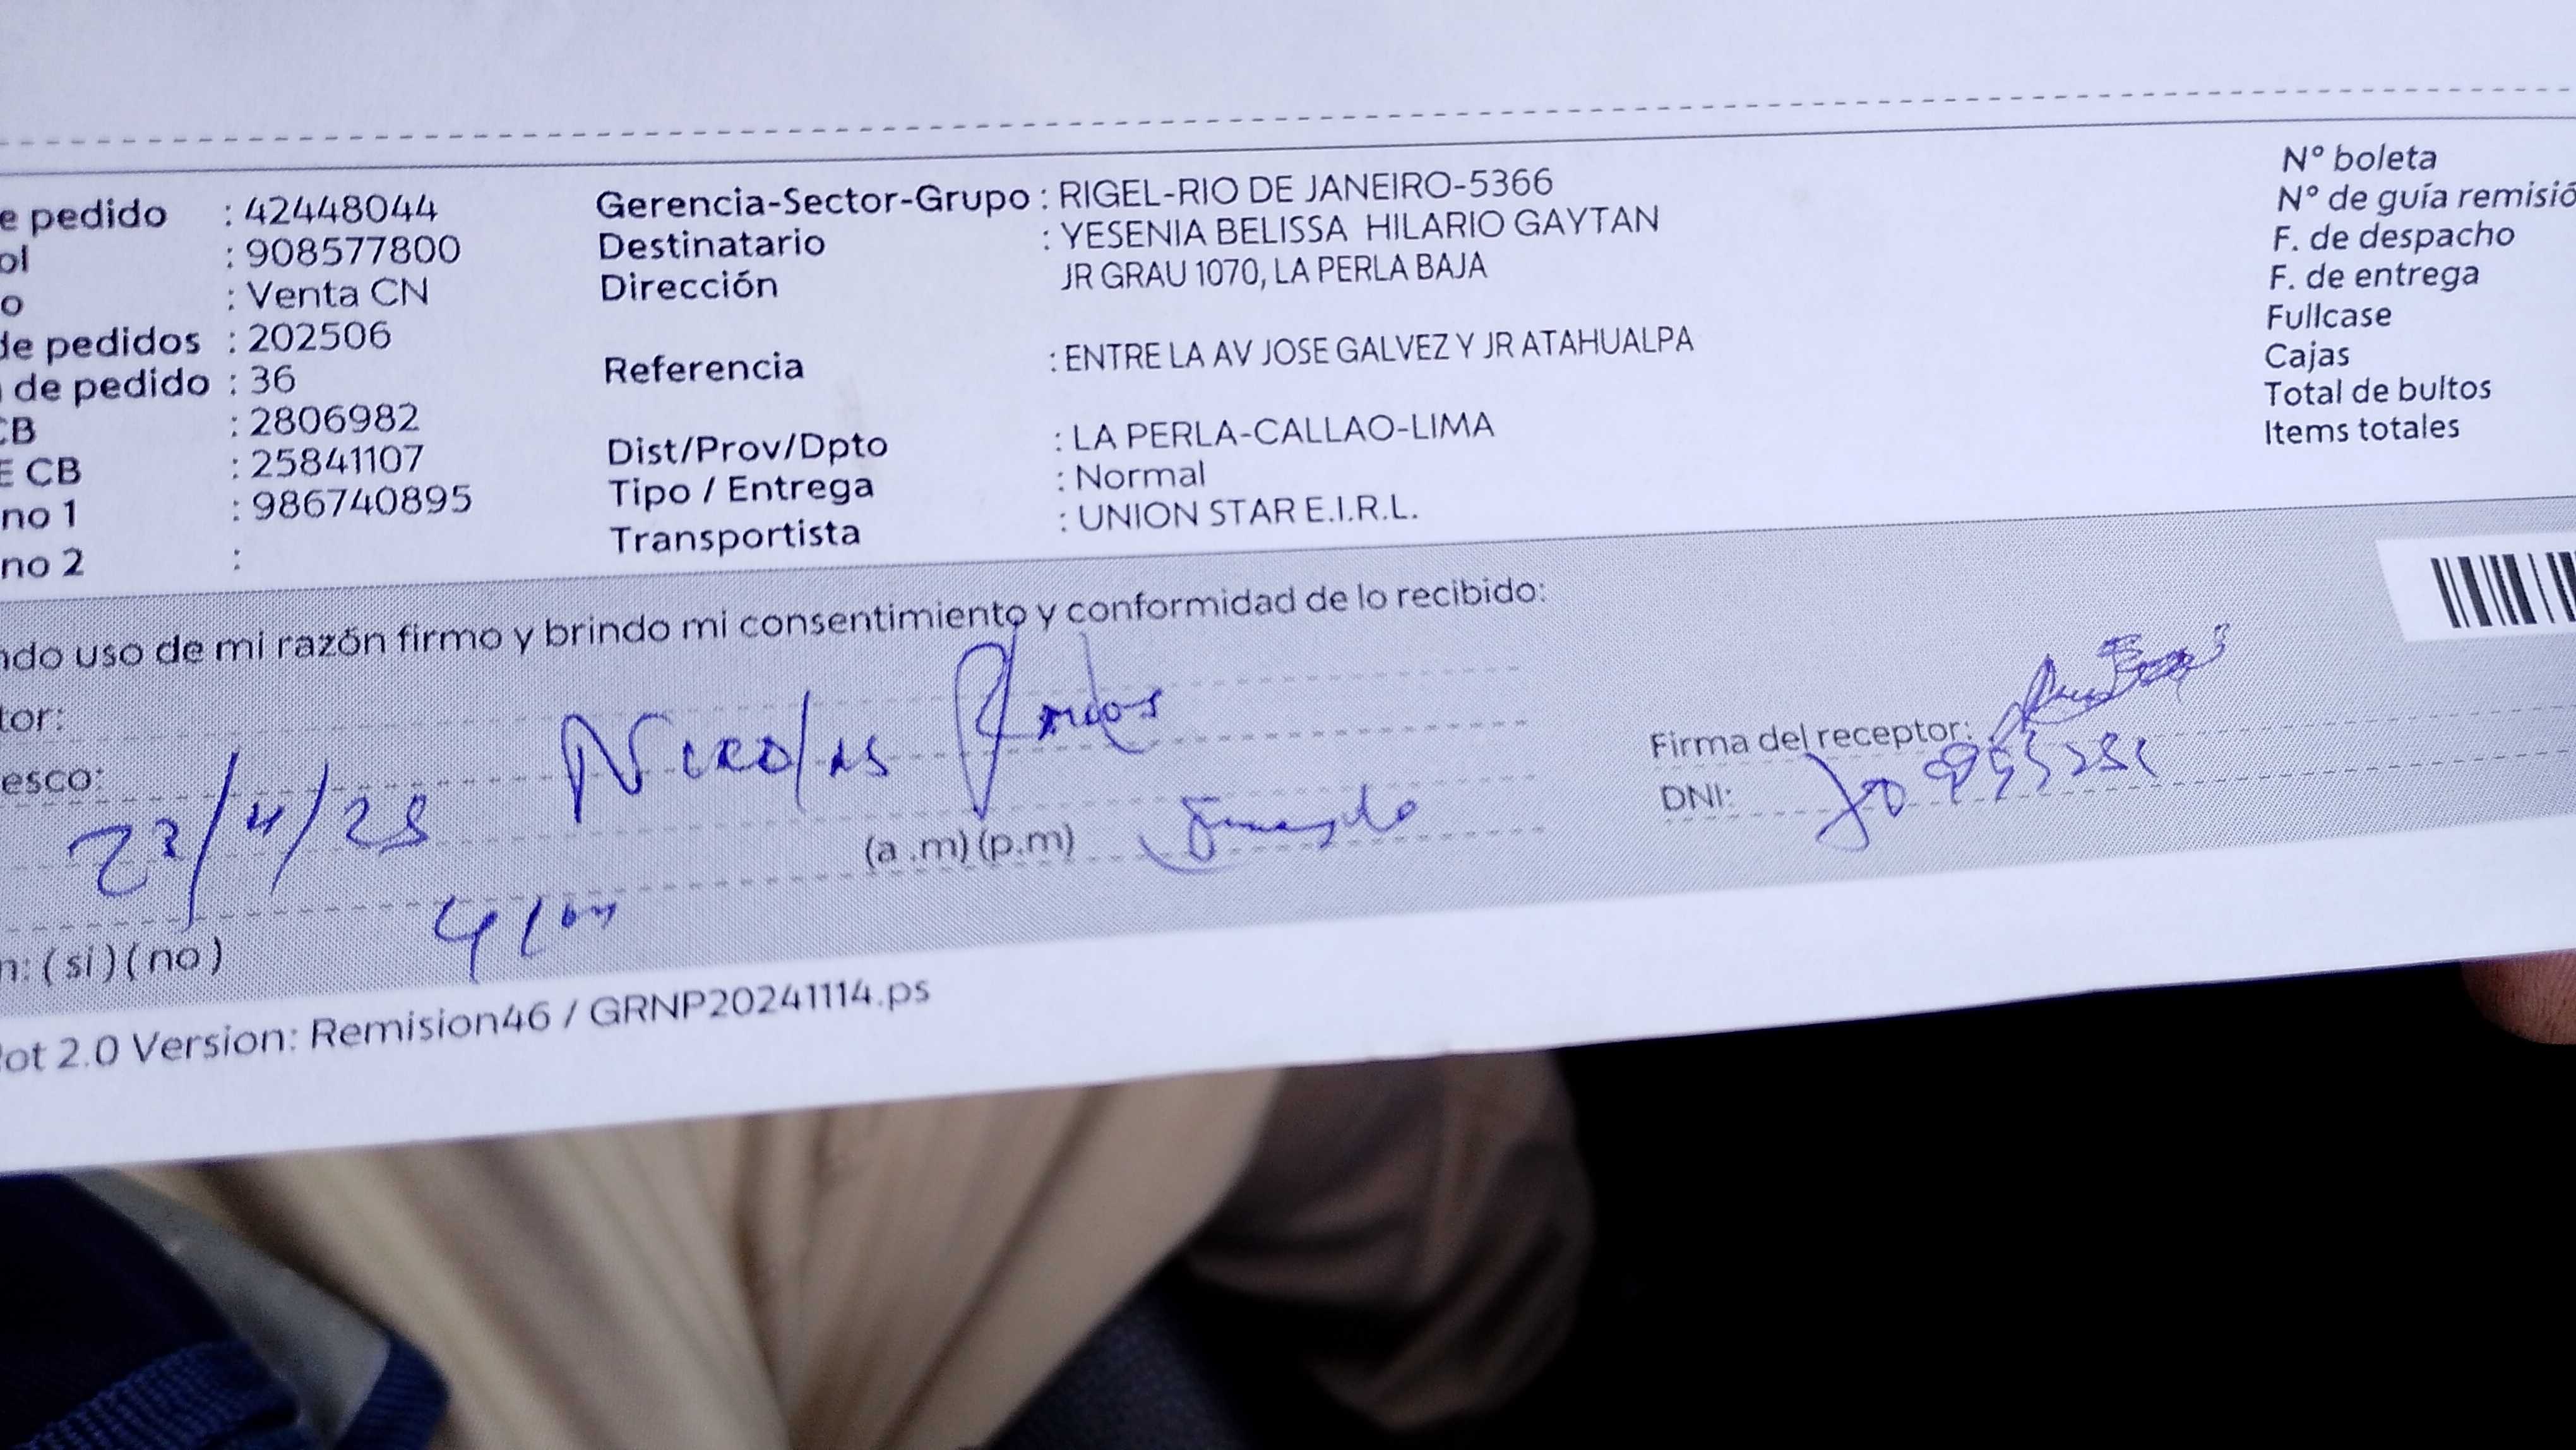 e pedido : 42448044
ol : 908577800
o : Venta CN
de pedidos : 202506
de pedido : 36
CB : 2806982
E CB : 25841107
no 1 : 986740895
no 2 :
Gerencia-Sector-Grupo : RIGEL-RIO DE JANEIRO-5366
Destinatario : YESENIA BELISSA HILARIO GAYTAN
Dirección JR GRAU 1070, LA PERLA BAJA
Referencia : ENTRE LA AV JOSE GALVEZ Y JR ATAHUALPA
Dist/Prov/Dpto : LA PERLA-CALLAO-LIMA
Tipo / Entrega : Normal
Transportista : UNION STAR E.I.R.L.
Nº boleta
Nº de guía remisió
F. de despacho
F. de entrega
Fullcase
Cajas
Total de bultos
Items totales
ndo uso de mi razón firmo y brindo mi consentimiento y conformidad de lo recibido:
tor: Nicolas
esco:
/4/25
(a .m) (p.m)
Firma del receptor:
DNI:
n: ( si ) ( no )
ot 2.0 Version: Remision46 / GRNP20241114.ps